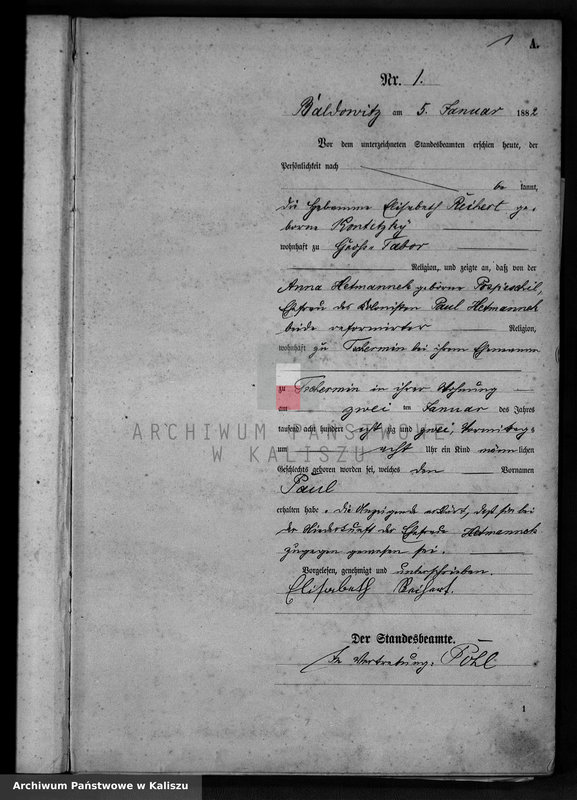 A.
Nr. 1.
Baldowitz am 5. Januar 1882
Vor dem unterzeichneten Standesbeamten erschien heute, der
Persönlichkeit nach
be kannt,
die Hebamme Elisabeth Reihert ge-
borne Kontetzky
wohnhaft zu Gross-Tabor
Religion, und zeigte an, daß von der
Anna Hetmannek geborne Pospieschil,
Ehefrau des Kolonisten Paul Hetmannek
beide reformirter Religion,
wohnhaft zu Tschermin bei ihrem Ehemann
zu Tschermin in ihrer Wohnung
am zwei ten Januar des Jahres
tausend acht hundert acht zig und zwei, Vormittags
um acht Uhr ein Kind männlichen
Geschlechts geboren worden sei, welches den Vornamen
Paul
erhalten habe. Die Anzeigende erklärt, daß sie bei
der Niederkunft der Ehefrau Hetmannek
zugegen gewesen sei.
Vorgelesen, genehmigt und unterschrieben.
Elisabeth Reihert.
Der Standesbeamte.
In Vertretung: Pohl
1
ARCHIWUM PAŃSTWOWE
W KALISZU
Archiwum Państwowe w Kaliszu